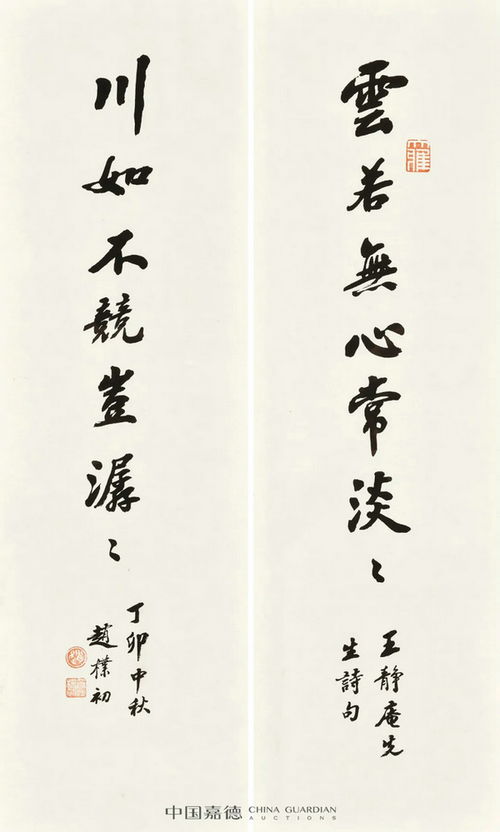 雲若無心常淡〻
王靜庵先
生詩句
川如不競豈潺〻
丁卯中秋
趙樸初
中国嘉德 CHINA GUARDIAN
AUCTIONS